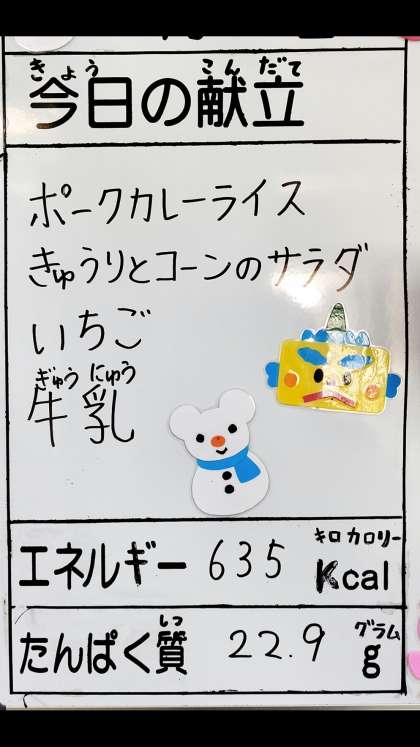 きょう こんだて
今日の献立
ポークカレーライス
きゅうりとコーンのサラダ
いちご
ぎゅう にゅう
牛乳
キロカロリー
エネルギー 635 Kcal
しつ グラム
たんぱく質 22.9 g